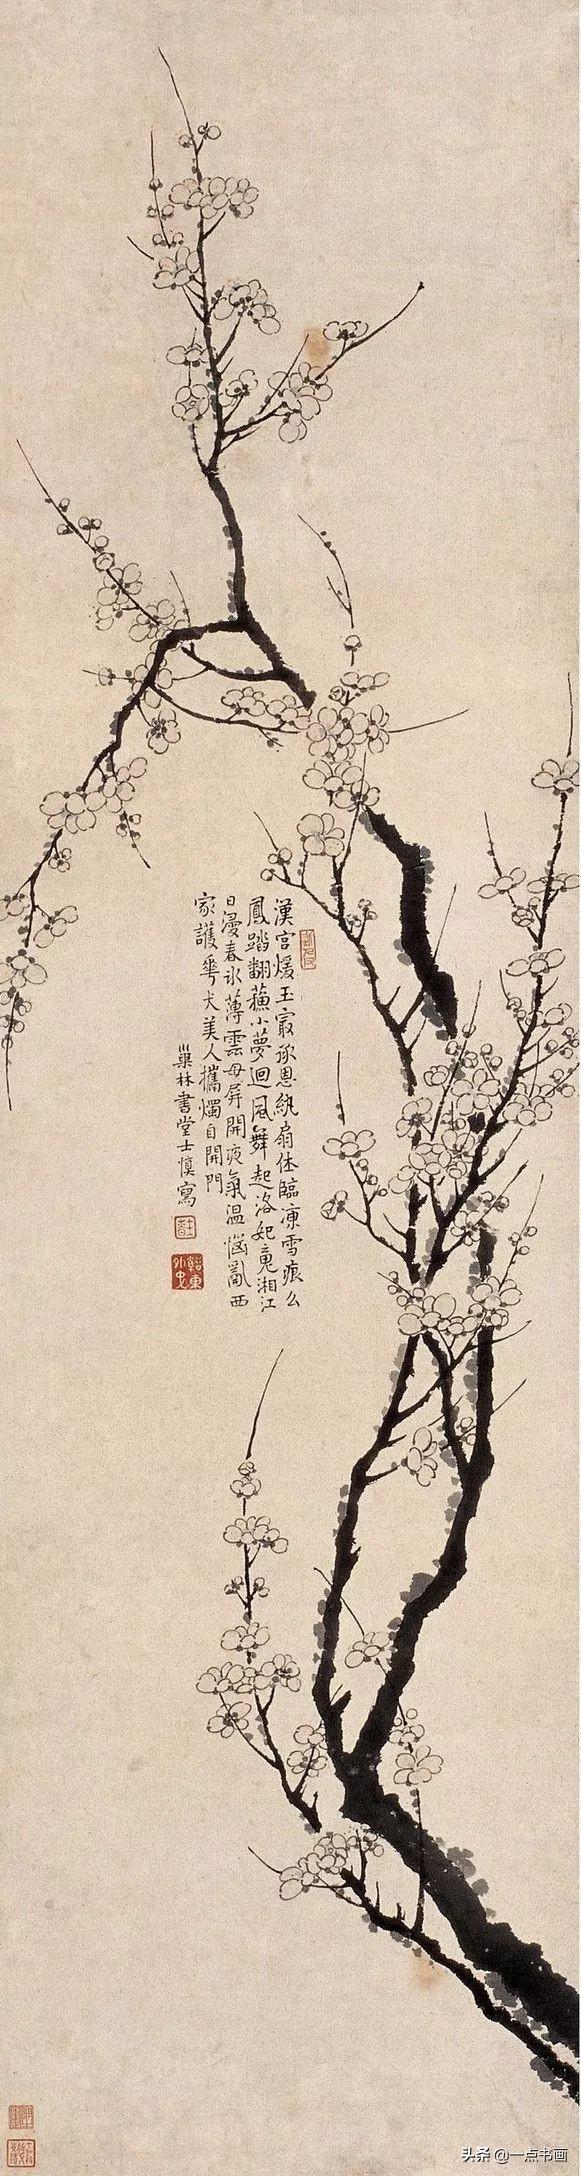 漢宮煖玉最承恩紈扇休臨凍雪痕么
鳳踏翻蘓小夢迴風舞起洛妃魂湘江
日漫春冰薄雲母屏開夜氣溫惱亂西
家護花犬美人攜燭自開門
巢林書堂士慎寫
头条 @一点书画